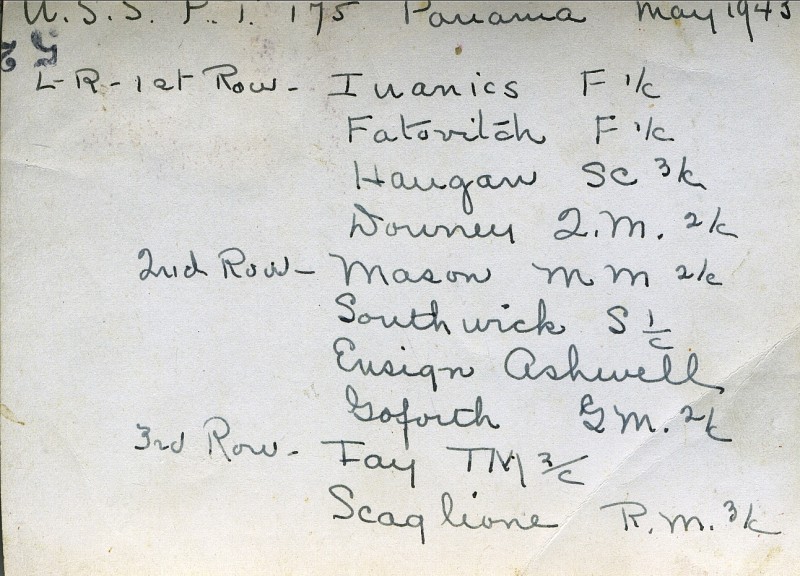 U.S.S. P.T. 175 Panama May 1943
52
L-R-1st Row- Ivanics F 1/c
Fatovitch F 1/c
Haugan SC 3/c
Downey Q.M. 2/c
2nd Row- Mason MM 2/c
Southwick S 1/c
Ensign Ashwell
Goforth GM. 2/c
3rd Row- Fay TM 3/c
Scaglione R.M. 3/c